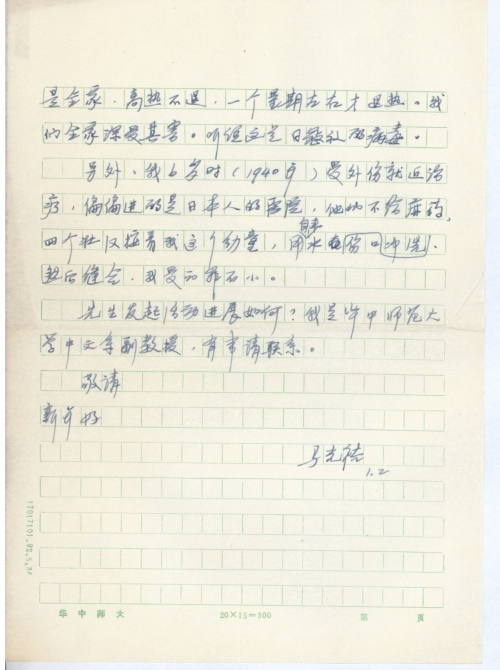 是全家,高热不退,一个星期左右才退热。我
们全家深受其害。听说这是日寇放的病毒。
另外,我6岁时(1940年)受外伤就近治
疗,偏偏进的是日本人的医院,他们不给麻药,
四个壮汉按着我这个幼童,用自来水在伤口冲洗,
然后缝合,我受的罪不小。
先生发起活动进展如何?我是华中师范大
学中文系副教授,有事请联系。
敬请
新年好
马光
1.2
17017101.92.5.
华中师大 20×15=300 第 页